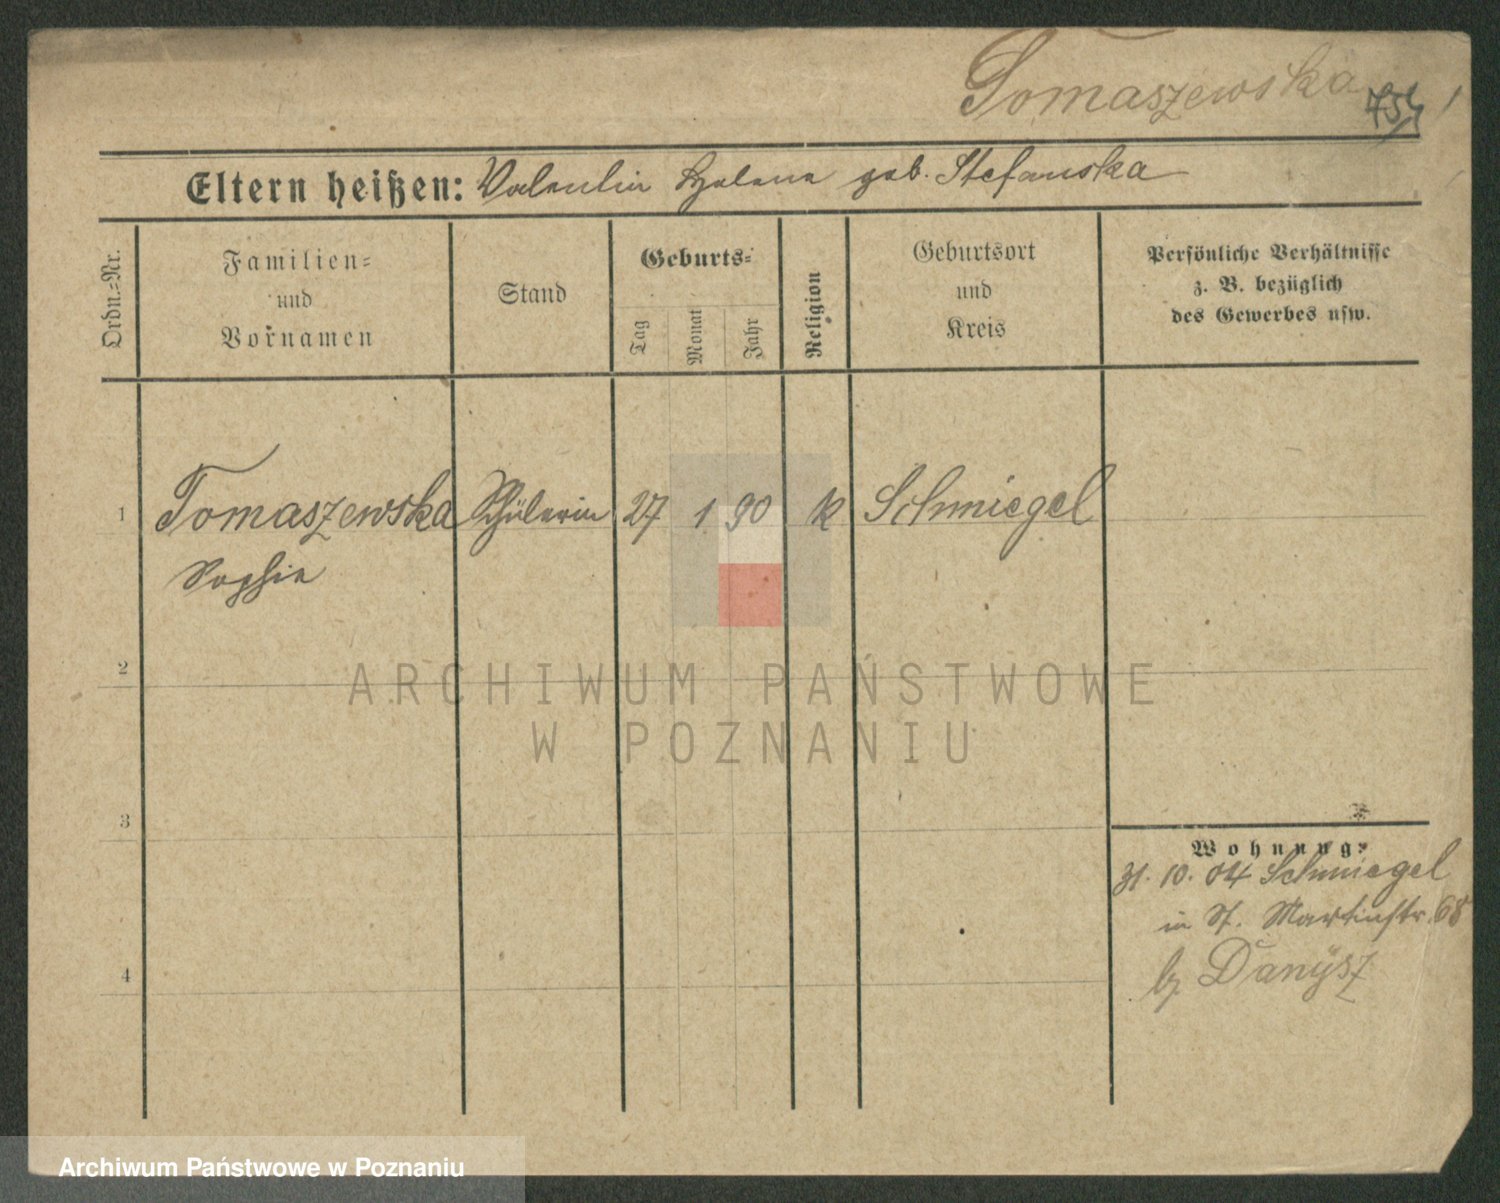 Tomaszewska
Eltern heißen: Valentin Helene geb. Stefanska
Ordn.=Nr.
Familien=
und
Vornamen
Stand
Geburts=
Tag
Monat
Jahr
Religion
Geburtsort
und
Kreis
Persönliche Verhältnisse
z. B. bezüglich
des Gewerbes usw.
1 Tomaszewska Schülerin 27 1 90 k Schmiegel
Sophie
2
3
4
Wohnung:
31. 10. 04 Schmiegel
in St. Martinstr. 68
by Danysz
ARCHIWUM PAŃSTWOWE
W POZNANIU
Archiwum Państwowe w Poznaniu